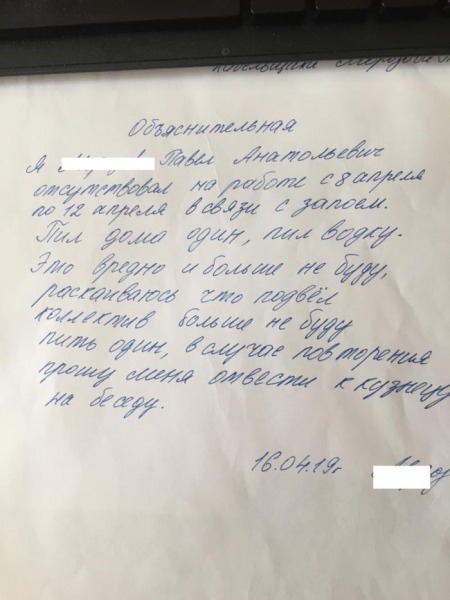 Объяснительная
Я Павел Анатольевич
отсутствовал на работе с 8 апреля
по 12 апреля в связи с запоем.
Пил дома один, пил водку.
Это вредно и больше не буду,
раскаиваюсь что подвёл
коллектив больше не буду
пить один, в случае повторения
прошу меня отвести к кузнецу
на беседу.
16.04.19г